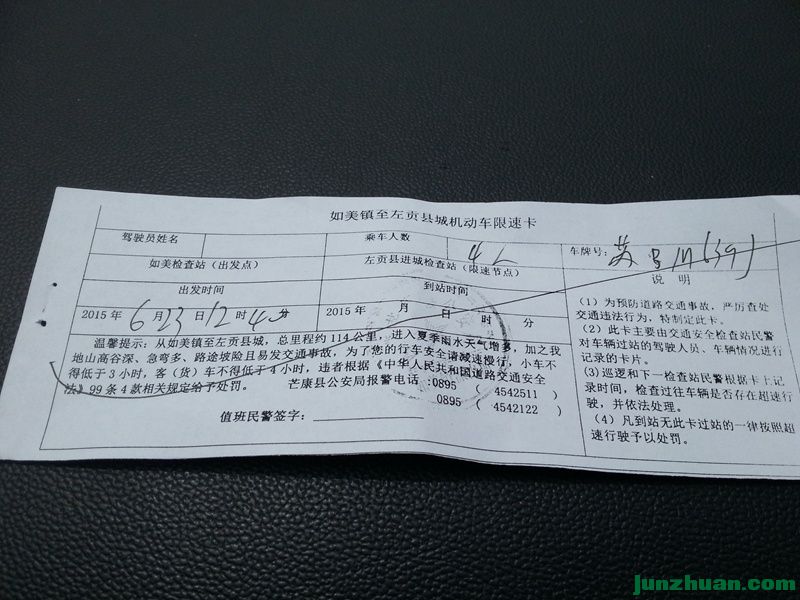 如美镇至左贡县城机动车限速卡
驾驶员姓名
乘车人数
4人
车牌号:
苏
如美检查站（出发点）
左贡县进城检查站（限速节点）
说 明
出发时间
到站时间
2015年 6月23日12时40分
2015年 月 日 时 分
温馨提示：从如美镇至左贡县城，总里程约114公里，进入夏季雨水天气增多，加之我
地山高谷深、急弯多、路途坡险且易发交通事故，为了您的行车安全请减速慢行，小车不
得低于3小时，客（货）车不得低于4小时，违者根据《中华人民共和国道路交通安全
法》99条4款相关规定给予处罚。
芒康县公安局报警电话:0895 （ 4542511 ）
0895 （ 4542122 ）
值班民警签字：
（1）为预防道路交通事故，严厉查处
交通违法行为，特制定此卡。
（2）此卡主要由交通安全检查站民警
对车辆过站的驾驶人员、车辆情况进行
记录的卡片。
(3）巡逻和下一检查站民警根据卡上记
录时间，检查过往车辆是否存在超速行
驶，并依法处理。
（4）凡到站无此卡过站的一律按照超
速行驶予以处罚。
junzhuan.com